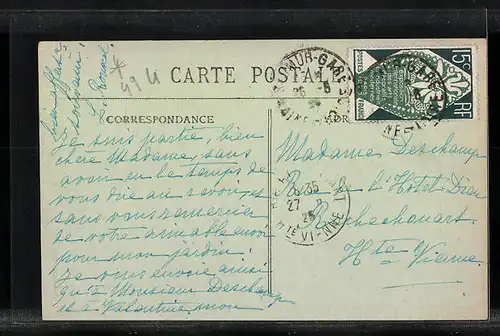 CARTE POSTALE
CORRESPONDANCE
Je suis partie, bien
chère Madame, sans
avoir eu le temps de
vous dire au revoir, et
sans vous remercier
de votre aimable envoi
pour mon jardin!
Je vous envoie ainsi
qu'à Monsieur Deschamp
et à Valentine, mon
49 U
Madame Deschamp
R. de l'Hôtel Dieu
Rochechouart
Hte Vienne
15c RF
UR-GARE
26 -5
27
25
Hte VIENNE